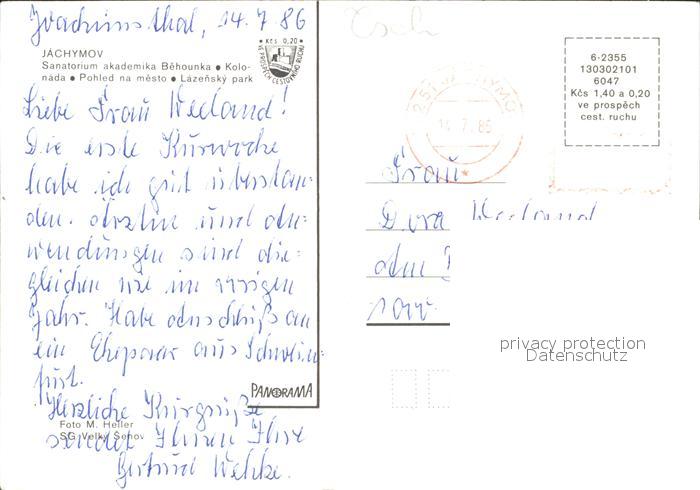 Joachimsthal, 14.7.86
JÁCHYMOV
Sanatorium akademika Běhounka ● Kolo-
náda ● Pohled na město ● Lázeňský park
Kčs 0,20
VE PROSPĚCH CESTOVNÍHO RUCHU
Liebe Frau Weeland!
Die erste Kurwoche
habe ich gut überstan-
den. Ärztin und An-
wendungen sind die-
gleichen wie im vorigen
Jahr. Habe Anschluß an
ein Ehepaar aus Schwein-
furt.
Herzliche Kurgrüße
sendet Ihnen Ihre
Gertrud
PANORAMA
Foto M. Heller
SG Velký Šenov
Tsch
JÁCHYMOV
14.7.86
6-2355
130302101
6047
Kčs 1,40 a 0,20
ve prospěch
cest. ruchu
Frau
Dora Weeland
privacy protection
Datenschutz